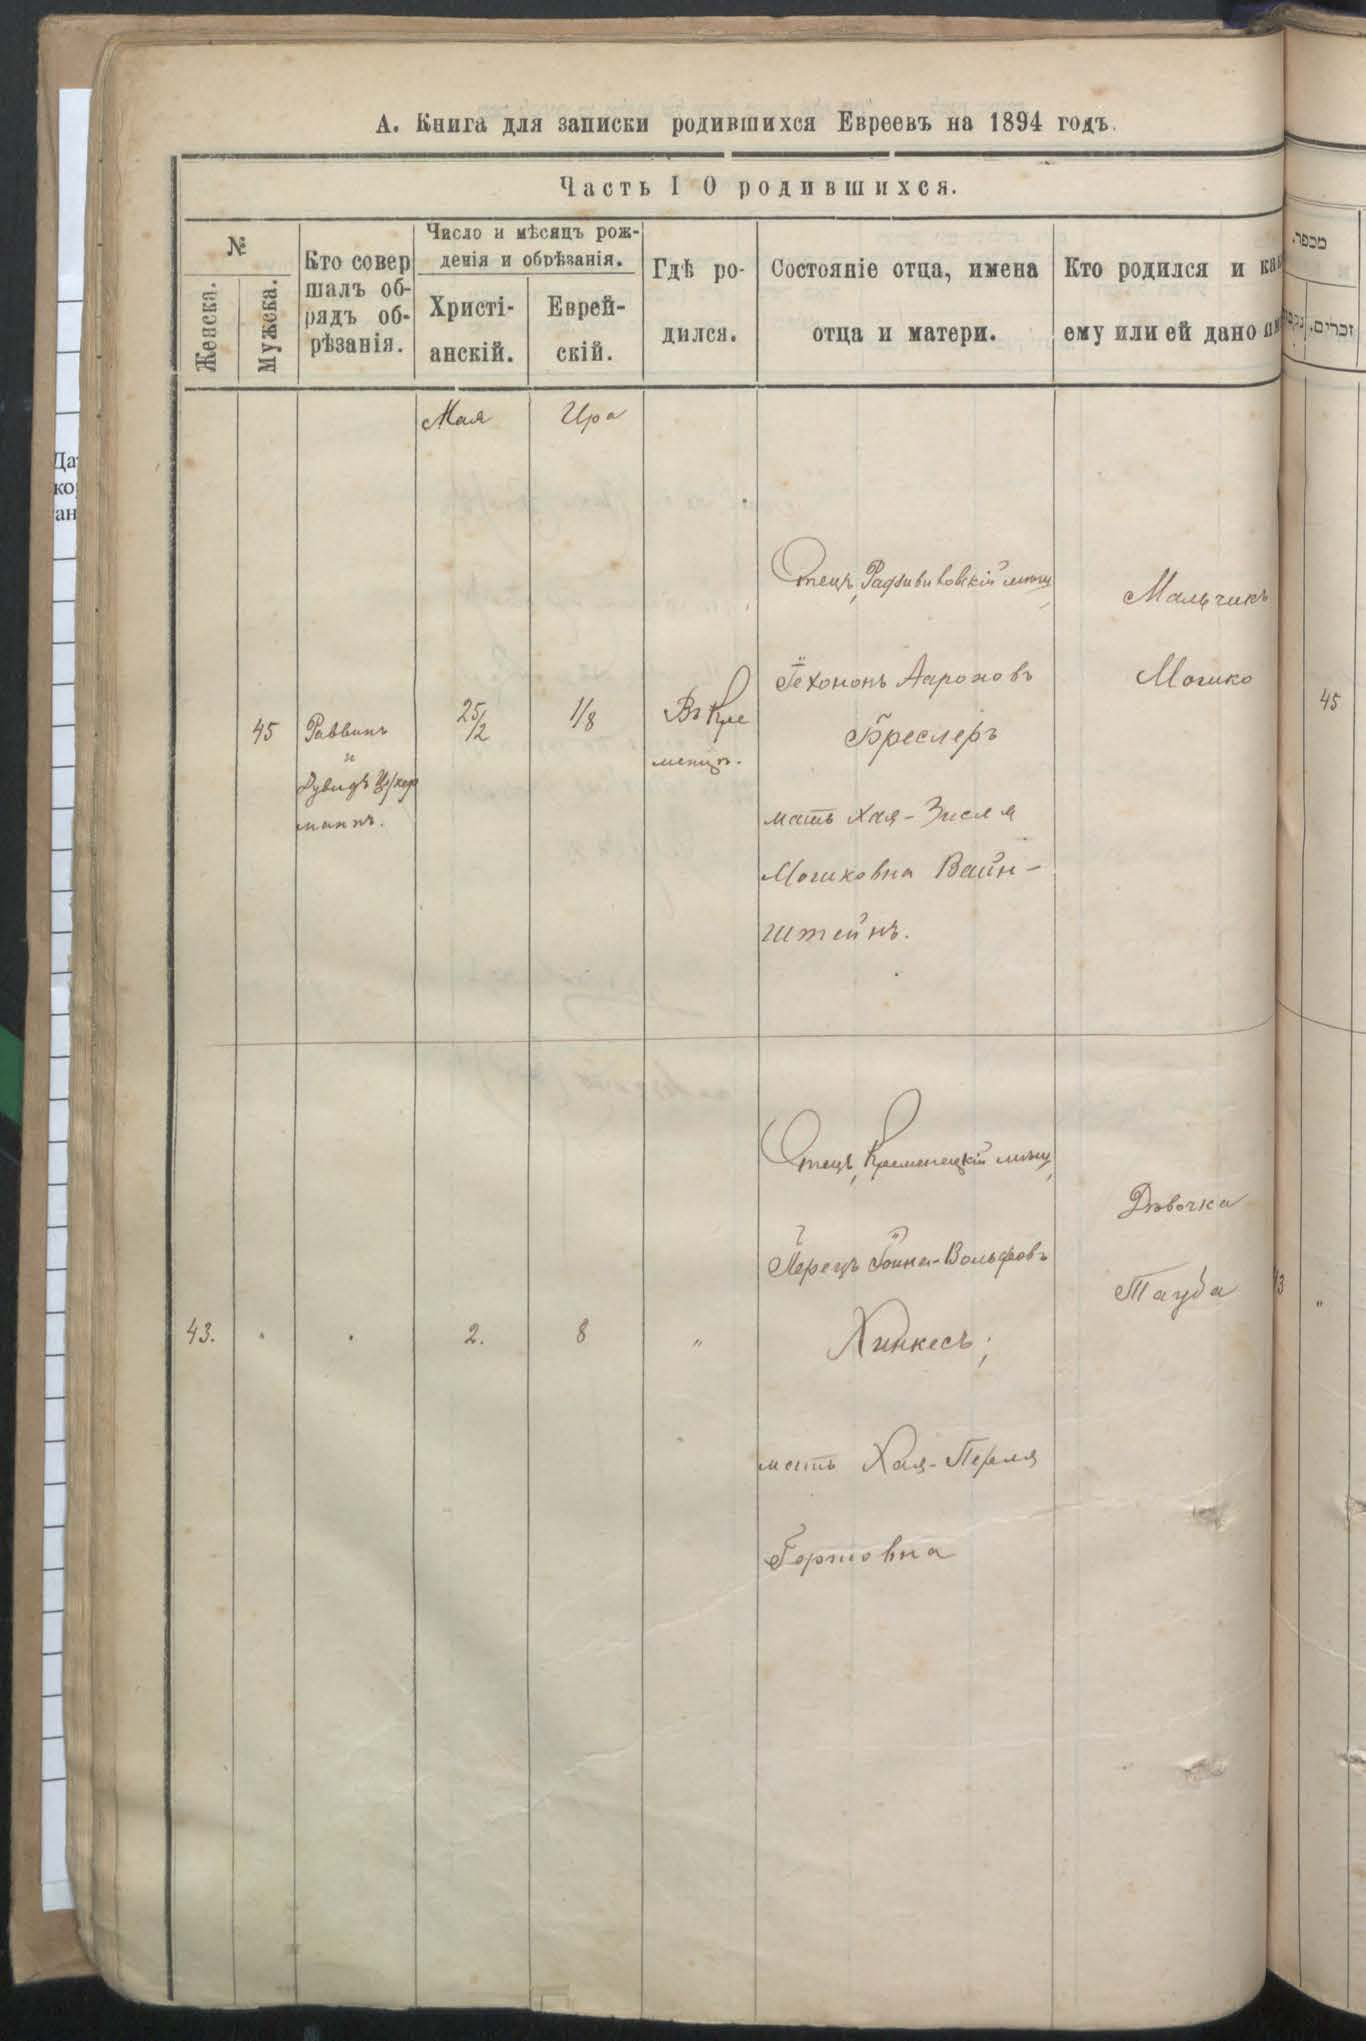 А. Книга для записки родившихся Евреевъ на 1894 годъ.
Часть I О родившихся.
№
Женска.
Мужеска.
Кто совер
шалъ об-
рядъ об-
рѣзанія.
Число и мѣсяцъ рож-
денія и обрѣзанія.
Христі-
анскій.
Еврей-
скій.
Гдѣ ро-
дился.
Состояніе отца, имена
отца и матери.
Кто родился и как
ему или ей дано им
Мая
Ира
45
Раввинъ
и
Дувидъ Цукер
манъ.
25/2
1/8
Въ Кре
менцѣ.
Отецъ, Радзивиловскій мѣщ,
Іехононъ Аароновъ
Бреслеръ
мать Хая-Зисля
Мошковна Вайн-
штейнъ.
Мальчикъ
Мошко
43.
2.
8
"
Отецъ, Кременецкій мѣщ,
Перецъ Іойна-Вольфовъ
Хинкесъ;
мать Хая-Перля
Гершовна
Дѣвочка
Тауба
מספר.
זכרים.
45
3
"